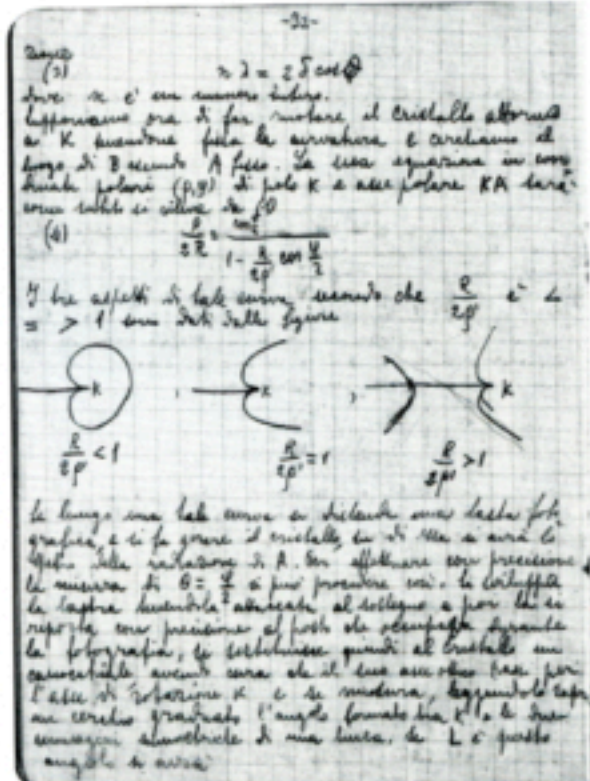 -32-
(3) n λ = 2 δ cos θ
dove n è un numero intero.
Supponiamo ora di far ruotare il cristallo attorno
a K tenendone fissa la curvatura e cerchiamo il
luogo di B essendo A fisso. La sua equazione in coor
dinate polari (ρ,ψ) di polo K e asse polare KA sarà
come subito si
(4)
1 - R/2ρ' cos ψ/2
I tre aspetti di tale curva, secondo che R/2ρ' è <
= > 1 sono dati dalle figure
K , K , K
R/2ρ' < 1 R/2ρ' = 1 R/2ρ' > 1
Se lungo una tale curva si distende una lastra foto
grafica, e si fa girare il cristallo, su di essa si avrà lo
della radiazione di A. Per effettuare con precisione
la misura di θ = ψ/2 si può procedere così. Si sviluppa
la lastra tenendola attaccata al sostegno e poi la si
riporta con precisione al posto che occupava durante
la fotografia, si sostituisce quindi al cristallo un
cannocchiale avendo cura che il suo asse passi per
l'asse di rotazione K e si misura, leggendolo sopra
un cerchio graduato l'angolo formato tra K e le due
immagini simmetriche di una linea. Se L è questo
angolo si avrà